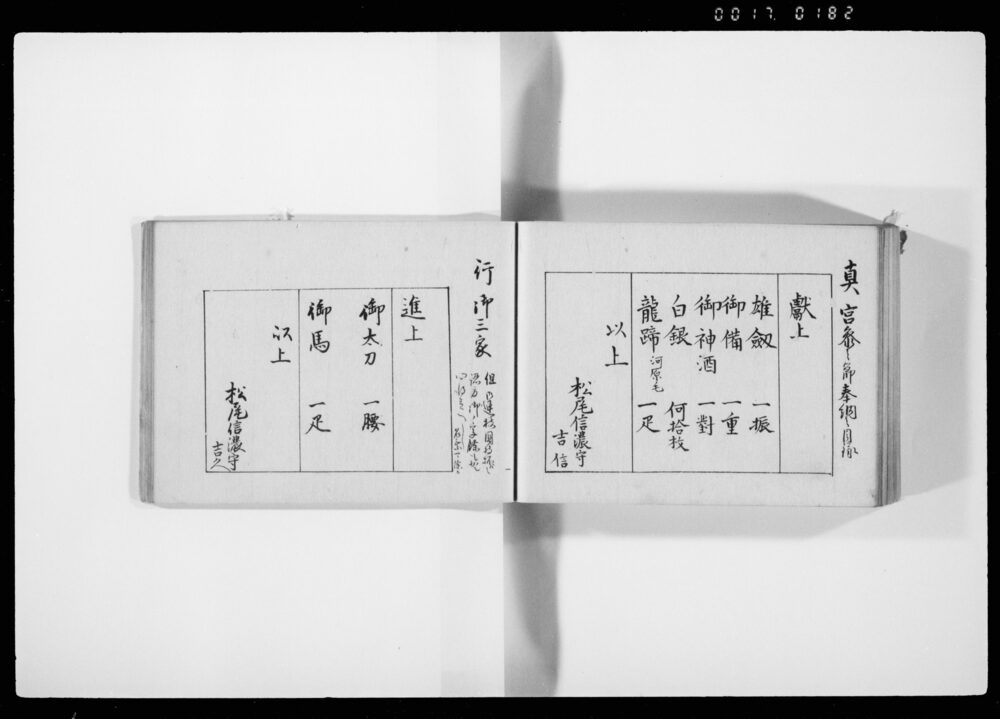 0017 0182
真 宮参之節奉納之目録
獻上
雄劔 一振
御備 一重
御神酒 一對
白銀 何拾枚
龍蹄 河原毛 一疋
以上
松尾信濃守
吉信
行 御三家
但
進上
御太刀 一腰
御馬 一疋
以上
松尾信濃守
吉久